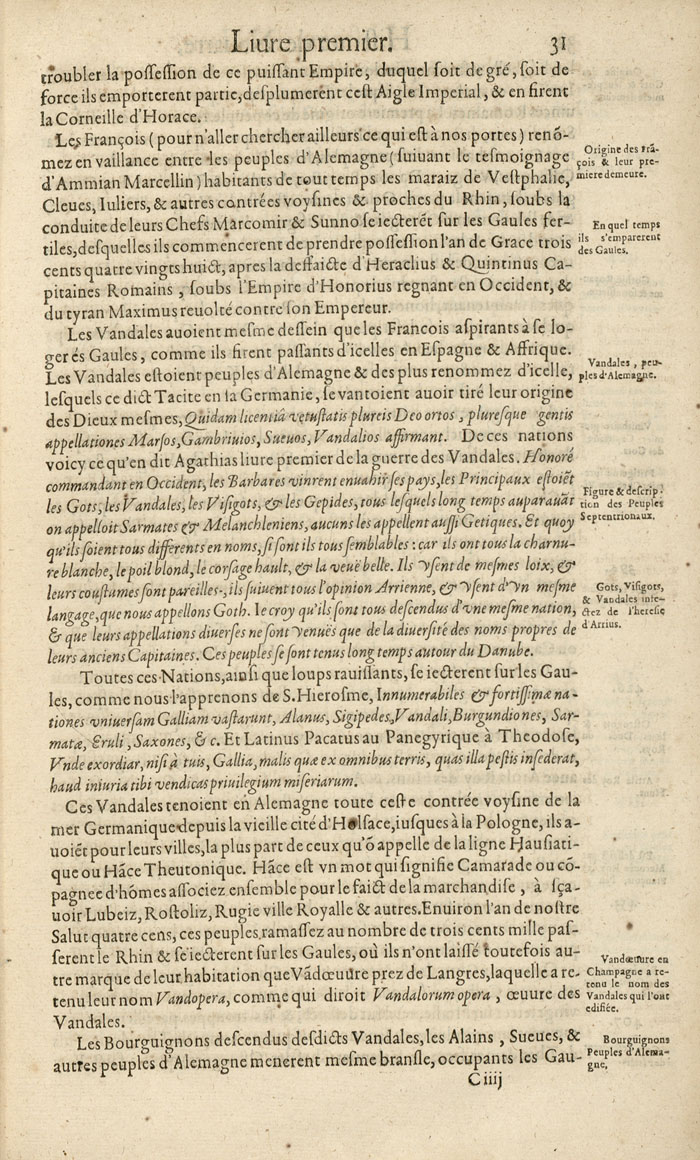 Liure premier. 31
troubler la possession de ce puissant Empire, duquel soit de gré, soit de
force ils emporterent partie, desplumerent cest Aigle Imperial, & en firent
la Corneille d'Horace.
Les François (pour n'aller chercher ailleurs ce qui est à nos portes) renō-
mez en vaillance entre les peuples d'Alemagne (suiuant le tesmoignage
d'Ammian Marcellin) habitants de tout temps les maraiz de Vestphalie,
Cleues, Iuliers, & autres contrées voysines & proches du Rhin, soubs la
conduite de leurs Chefs Marcomir & Sunno se iecterēt sur les Gaules fer-
tiles, desquelles ils commencerent de prendre possession l'an de Grace trois
cents quatre vingts huict, apres la deffaicte d'Heraclius & Quintinus Ca-
pitaines Romains, soubs l'Empire d'Honorius regnant en Occident, &
du tyran Maximus reuolté contre son Empereur.
Origine des Frā-
çois & leur pre-
miere demeure.
En quel temps
ils s'emparerent
des Gaules.
Les Vandales auoient mesme dessein que les Francois aspirants à se lo-
ger és Gaules, comme ils firent passants d'icelles en Espagne & Affrique.
Les Vandales estoient peuples d'Alemagne & des plus renommez d'icelle,
lesquels ce dict Tacite en sa Germanie, se vantoient auoir tiré leur origine
des Dieux mesmes, Quidam licentiâ vetustatis plureis Deo ortos, pluresque gentis
appellationes Marsos, Gambriuios, Sueuos, Vandalios affirmant. De ces nations
voicy ce qu'en dit Agathias liure premier de la guerre des Vandales. Honoré
commandant en Occident, les Barbares vinrent enuahir ses pays, les Principaux estoiēt
les Gots, les Vandales, les Visigots, & les Gepides, tous lesquels long temps auparauāt
on appelloit Sarmates & Melanchleniens, aucuns les appellent aussi Getiques. Et quoy
qu'ils soient tous differents en noms, si sont ils tous semblables : car ils ont tous la charnu-
re blanche, le poil blond, le corsage hault, & la veuë belle. Ils vsent de mesmes loix, &
leurs coustumes sont pareilles, ils suiuent tous l'opinion Arrienne, & vsent d'vn mesme
langage, que nous appellons Goth. Ie croy qu'ils sont tous descendus d'vne mesme nation,
& que leurs appellations diuerses ne sont venuës que de la diuersité des noms propres de
leurs anciens Capitaines. Ces peuples se sont tenus long temps autour du Danube.
Vandales, peu-
ples d'Alemagne.
Figure & descrip-
tion des Peuples
Septentrionaux.
Gots, Visigots,
& Vandales infe-
ctez de l'heresie
d'Arrius.
Toutes ces Nations, ainsi que loups rauissants, se iecterent sur les Gau-
les, comme nous l'apprenons de S. Hierosme, Innumerabiles & fortissimæ na-
tiones vniuersam Galliam vastarunt, Alanus, Sigipedes, Vandali, Burgundiones, Sar-
matæ, Eruli, Saxones, & c. Et Latinus Pacatus au Panegyrique à Theodose,
Vnde exordiar, nisi à tuis, Gallia, malis quæ ex omnibus terris, quas illa pestis insederat,
haud iniuria tibi vendicas priuilegium miseriarum.
Ces Vandales tenoient en Alemagne toute ceste contrée voysine de la
mer Germanique depuis la vieille cité d'Holsace, iusques à la Pologne, ils a-
uoiēt pour leurs villes, la plus part de ceux qu'ō appelle de la ligne Hausiati-
que ou Hāce Theutonique. Hāce est vn mot qui signifie Camarade ou cō-
pagnee d'hōmes associez ensemble pour le faict de la marchandise, à sça-
uoir Lubeiz, Rostoliz, Rugie ville Royalle & autres. Enuiron l'an de nostre
Salut quatre cens, ces peuples ramassez au nombre de trois cents mille pas-
serent le Rhin & se iecterent sur les Gaules, où ils n'ont laissé toutefois au-
tre marque de leur habitation que Vādœuure prez de Langres, laquelle a re-
tenu leur nom Vandopera, comme qui diroit Vandalorum opera, œuure des
Vandales.
Vandœuure en
Champagne a re-
tenu le nom des
Vandales qui l'ont
edifiée.
Les Bourguignons descendus desdicts Vandales, les Alains, Sueues, &
autres peuples d'Alemagne menerent mesme bransle, occupants les Gau-
Bourguignons
Peuples d'Alema-
gne.
C iiij